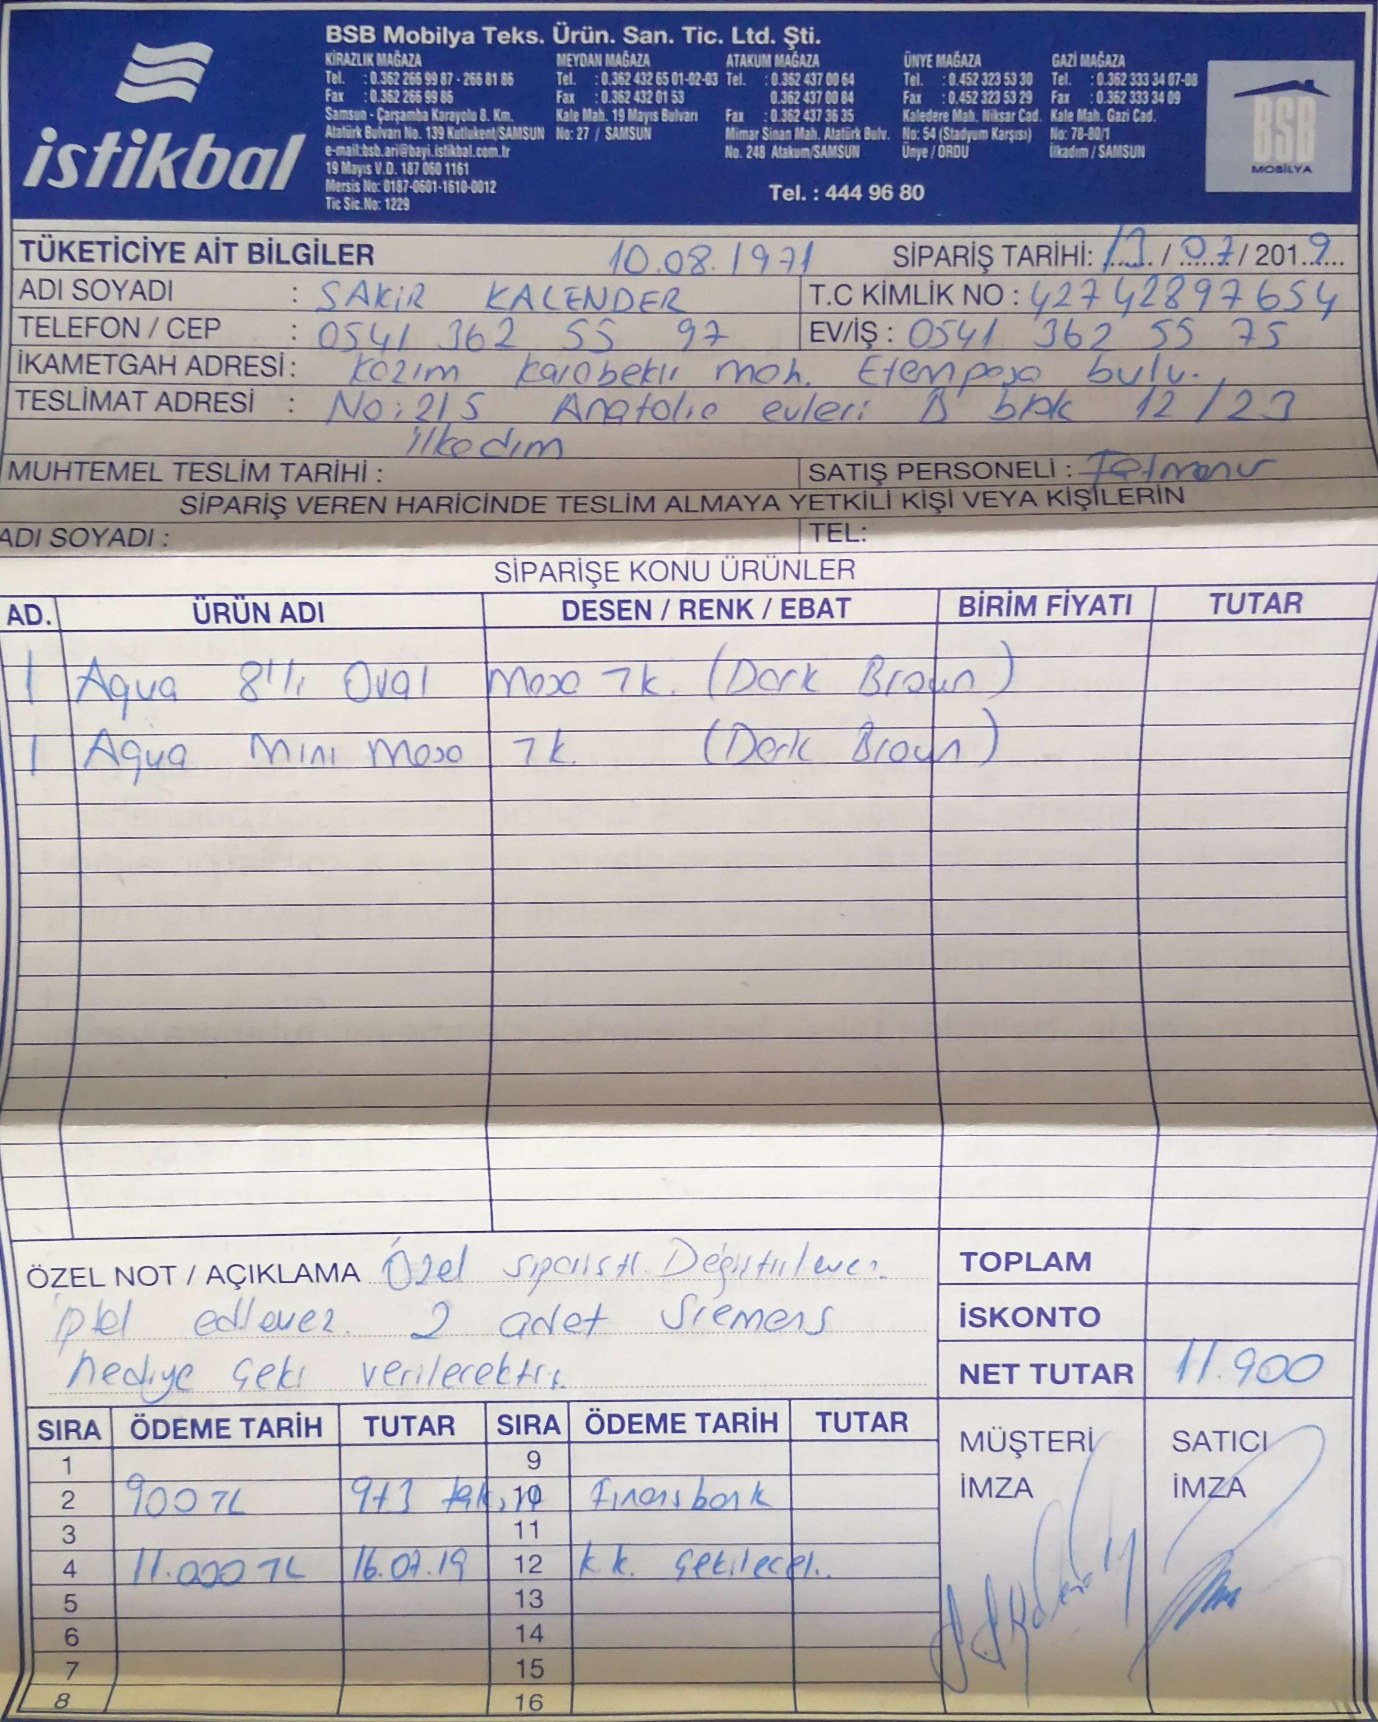 istikbal
BSB Mobilya Teks. Ürün. San. Tic. Ltd. Şti.
KİRAZLIK MAĞAZA
Tel. : 0.362 266 99 87 - 266 81 86
Fax : 0.362 266 99 86
Samsun - Çarşamba Karayolu 8. Km.
Atatürk Bulvarı No. 139 Kutlukent/SAMSUN
e-mail:bsb.ari@bayi.istikbal.com.tr
19 Mayıs V.D. 187 060 1161
Mersis No: 0187-0601-1610-0012
Tic Sic.No: 1229
MEYDAN MAĞAZA
Tel. : 0.362 432 65 01-02-03
Fax : 0.362 432 01 53
Kale Mah. 19 Mayıs Bulvarı
No: 27 / SAMSUN
ATAKUM MAĞAZA
Tel. : 0.362 437 00 64
0.362 437 00 84
Fax : 0.362 437 36 35
Mimar Sinan Mah. Atatürk Bulv.
No. 248 Atakum/SAMSUN
ÜNYE MAĞAZA
Tel. : 0.452 323 53 30
Fax : 0.452 323 53 29
Kaledere Mah. Niksar Cad.
No: 54 (Stadyum Karşısı)
Ünye / ORDU
GAZİ MAĞAZA
Tel. : 0.362 333 34 07-08
Fax : 0.362 333 34 09
Kale Mah. Gazi Cad.
No: 78-80/1
İlkadım / SAMSUN
Tel. : 444 96 80
BSB
MOBİLYA
TÜKETİCİYE AİT BİLGİLER 10.08.1971 SİPARİŞ TARİHİ: 13 / 07 / 2019
ADI SOYADI : SAKİR KALENDER T.C KİMLİK NO : 42742897654
TELEFON / CEP : 0541 362 55 97 EV/İŞ : 0541 362 55 75
İKAMETGAH ADRESİ : Kazım Karabekir mah. Etempaşa bulv.
TESLİMAT ADRESİ : No: 215 Anatolia evleri B blok 12 / 23
ilkadım
MUHTEMEL TESLİM TARİHİ : SATIŞ PERSONELİ : Fatmanur
SİPARİŞ VEREN HARİCİNDE TESLİM ALMAYA YETKİLİ KİŞİ VEYA KİŞİLERİN
ADI SOYADI : TEL:
SİPARİŞE KONU ÜRÜNLER
AD. ÜRÜN ADI DESEN / RENK / EBAT BİRİM FİYATI TUTAR
1 Aqua 8'li Oval Masa Tk. (Dark Braun)
1 Aqua Mini Masa Tk. (Dark Braun)
ÖZEL NOT / AÇIKLAMA Özel siparişti. Değiştirilemez.
iptal edilemez. 2 adet Siemens
hediye çeki verilecektir.
TOPLAM
İSKONTO
NET TUTAR 11.900
SIRA ÖDEME TARİH TUTAR SIRA ÖDEME TARİH TUTAR
1 9
2 900 TL 9+3 tak. 10 Finansbank
3 11
4 11.000 TL 16.07.19 12 k.k. Çekilecek.
5 13
6 14
7 15
8 16
MÜŞTERİ
İMZA
SATICI
İMZA